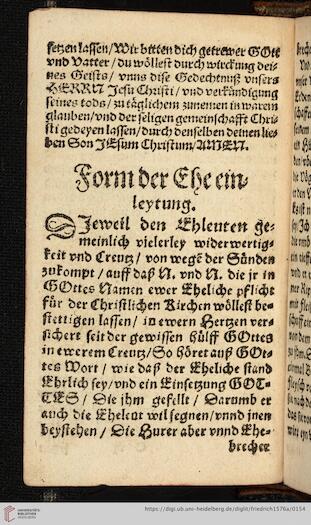 setzen lassen/Wir bitten dich getrewer GOtt
vnd Vatter/du wöllest durch wirckung dei-
nes Geists/vnns dise Gedechtnuß vnsers
HERRN Jesu Christi/vnd verkündigung
seines tods/zu täglichem zunemen in warem
glauben/vnd der seligen gemeinschafft Chri-
sti gedeyen lassen/durch denselben deinen lie-
ben Son JEsum Christum/AMEN.
Form der Ehe ein-
leytung.
DJeweil den Ehleuten ge-
meinlich vielerley widerwertig-
keit vnd Creutz/von wegẽ der Sünden
zukompt/auff daß N. vnd N. die jr in
GOttes Namen ewer Eheliche pflicht
für der Christlichen Kirchen wöllest be-
stettigen lassen/in ewern Hertzen ver-
sichert seit der gewissen hülff GOttes
in ewerem Creutz/So höret auß GOt-
tes Wort/wie daß der Eheliche stand
Ehrlich sey/vnd ein Einsetzung GOT-
TES/Die jhm gefellt/Darumb er
auch die Eheleut wil segnen/vnnd jnen
beystehen/Die Hurer aber vnnd Ehe-
brecher
https://digi.ub.uni-heidelberg.de/diglit/friedrich1576a/0154